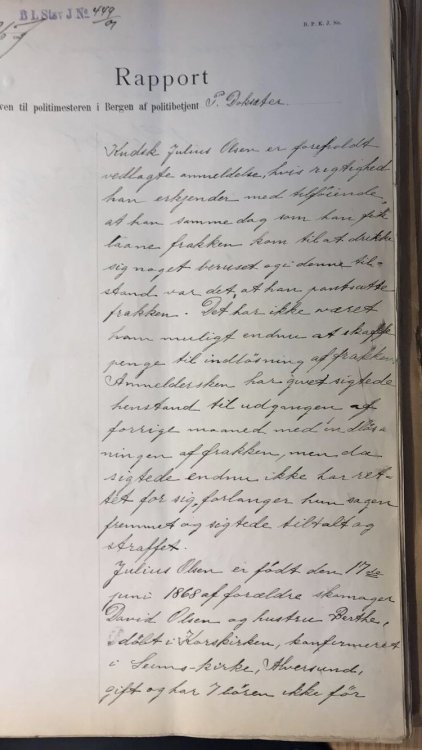 B L Stsv J № 449/07
B. P. K. J. No.
Rapport
ven til politimesteren i Bergen af politibetjent P. Doksæter.
Kudsk Julius Olsen er foreholdt
vedlagte anmeldelse, hvis rigtighed
han erkjender med tilføiende,
at han samme dag som han fik
laane frakken kom til at drikke
sig noget beruset og i denne til-
stand var det, at han pantsatte
frakken. Det har ikke været
ham muligt endnu at skaffe
penge til indløsning af frakken.
Anmeldersken har givet sigtede
henstand til udgangen af
forrige maaned med indløs-
ningen af frakken, men da
sigtede endnu ikke har ret-
tet for sig, forlanger hun sagen
fremmet og sigtede tiltalt og
straffet.
Julius Olsen er født den 17de
juni 1868 af forældre skomager
David Olsen og hustru Berthe,
døbt i Korskirken, konfirmeret
i Seims-kirke, Alversund,
gift og har 7 børen ikke før